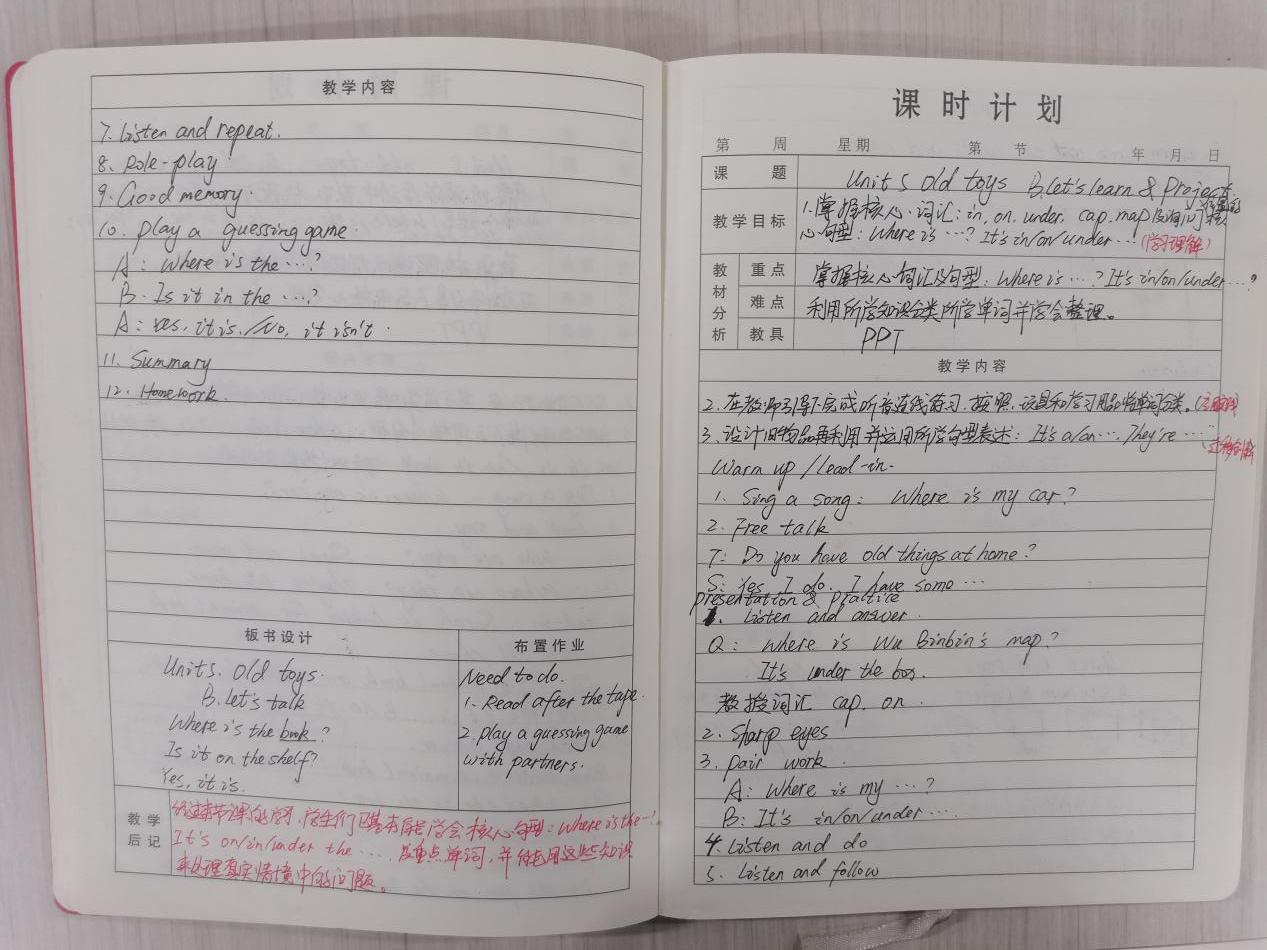 教学内容
7. Listen and repeat.
8. Role-play
9. Good memory.
10. play a guessing game.
A: Where is the ...?
B. Is it in the ...?
A: Yes, it is. /No, it isn't.
11. Summary
12. Homework.
板书设计
Unit 5. Old toys.
B. let's talk
Where is the book?
Is it on the shelf?
Yes, it is.
布置作业
Need to do.
1. Read after the tape.
2. play a guessing game
with partners.
教学后记
经过本节课的学习，学生们已基本学会核心句型：Where is the ...?
It's on/in/under the .... 及重点单词，并能用这些知识
来处理真实情境中的问题。
课时计划
第 周 星期 第 节 年 月 日
课题 Unit 5 Old toys B. Let's learn & Project.
教学目标 1. 掌握核心词汇：in, on, under, cap, map 及询问
心句型：Where is ...? It's in/on/under... (学习理解)
教材分析
重点 掌握核心词汇及句型：Where is ...? It's in/on/under ...?
难点 利用所学知识分类所学单词并学会整理。
教具 PPT
教学内容
2. 在教师引导下完成听音连线练习，按照，玩具和学习用品将单词分类。
3. 设计旧物品再利用并运用所学句型表述：It's a/an .... They're ....
Warm up / Lead-in.
1. Sing a song: Where is my car?
2. Free talk
T: Do you have old things at home?
S: Yes, I do. I have some ...
presentation & practice
1. Listen and answer.
Q: where is Wu Binbin's map?
It's under the box.
教授词汇 cap, on.
2. Sharp eyes
3. pair work.
A: Where is my ...?
B: It's in/on/under ....
4. Listen and do
5. Listen and follow